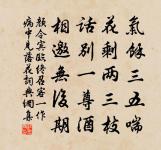 氣餘三五喘
花剩兩三枝
話別一尊酒
相邀無後期
顏令賓臨終召客一作
病中見落花詞典網集